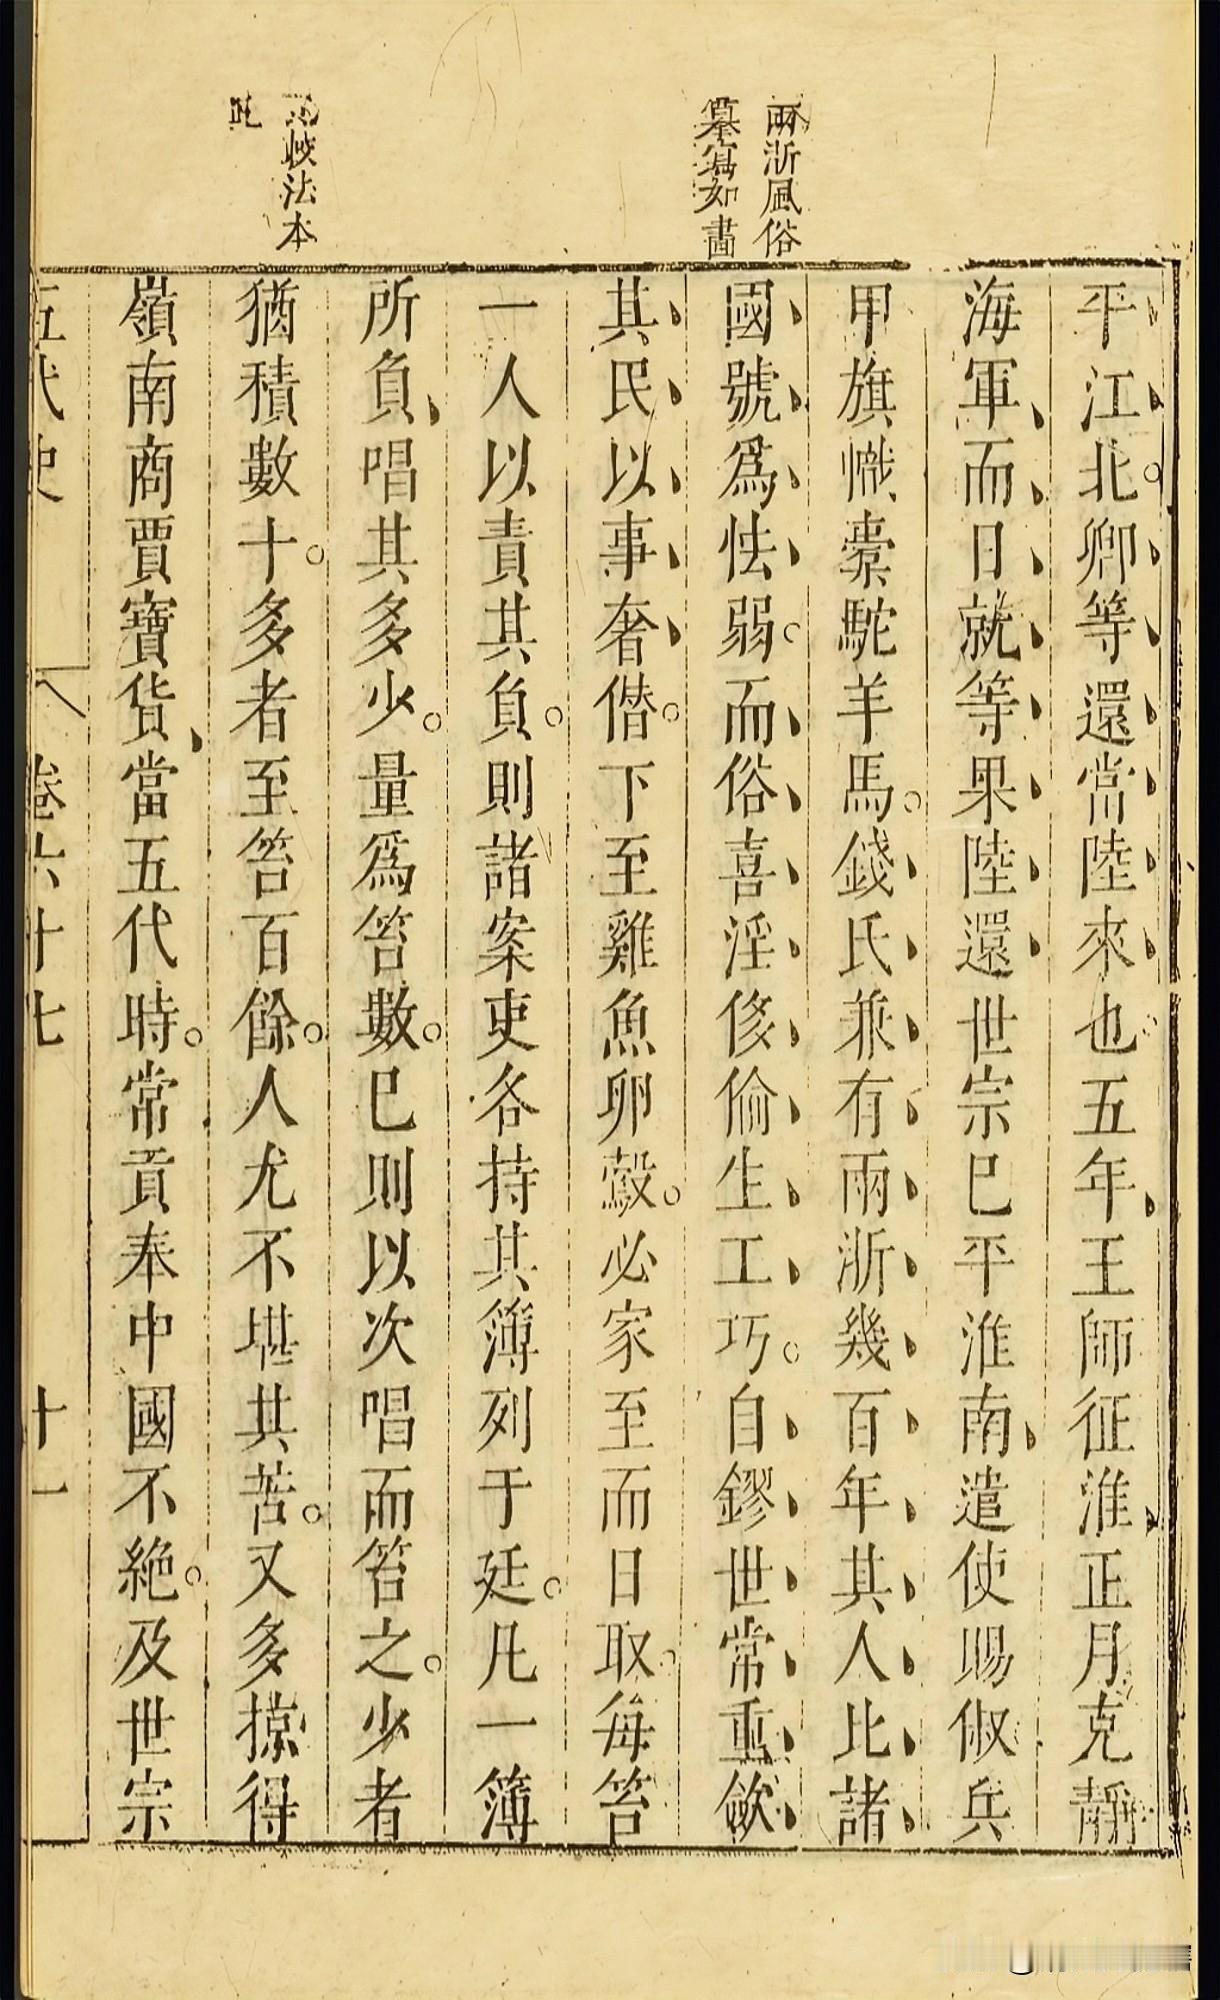 兩浙風俗
摹寫如畵
比挍法本
此
平江北卿等還當陸來也五年王師征淮正月克靜
海軍而日就等果陸還世宗已平淮南遣使賜俶兵
甲旗幟橐駝羊馬錢氏兼有兩浙幾百年其人比諸
國號爲怯弱而俗喜淫侈偷生工巧自鏐世常重斂
其民以事奢僭下至雞魚卵鷇必家至而日取每笞
一人以責其負則諸案吏各持其簿列于廷凡一簿
所負唱其多少量爲笞數已則以次唱而笞之少者
猶積數十多者至笞百餘人尤不堪其苦又多掠得
嶺南商賈寶貨當五代時常貢奉中國不絶及世宗
五代史 卷六十七 十一